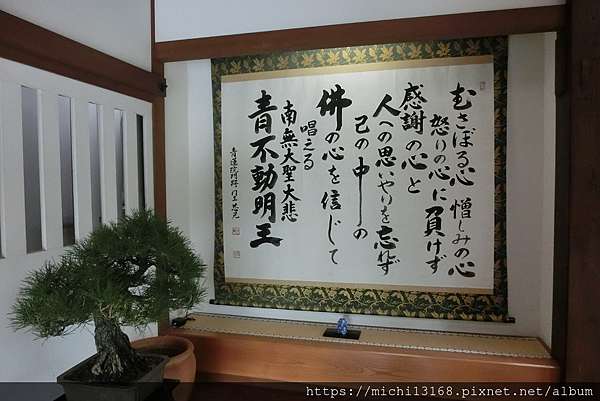 むさぼる心 憎しみの心
怒りの心に負けず
感謝の心と
人への思いやりを忘れず
己の中の
佛の心を信じて
唱える
南無大聖大悲
青不動明王
青蓮院門跡
https://michi13168.pixnet.net/album